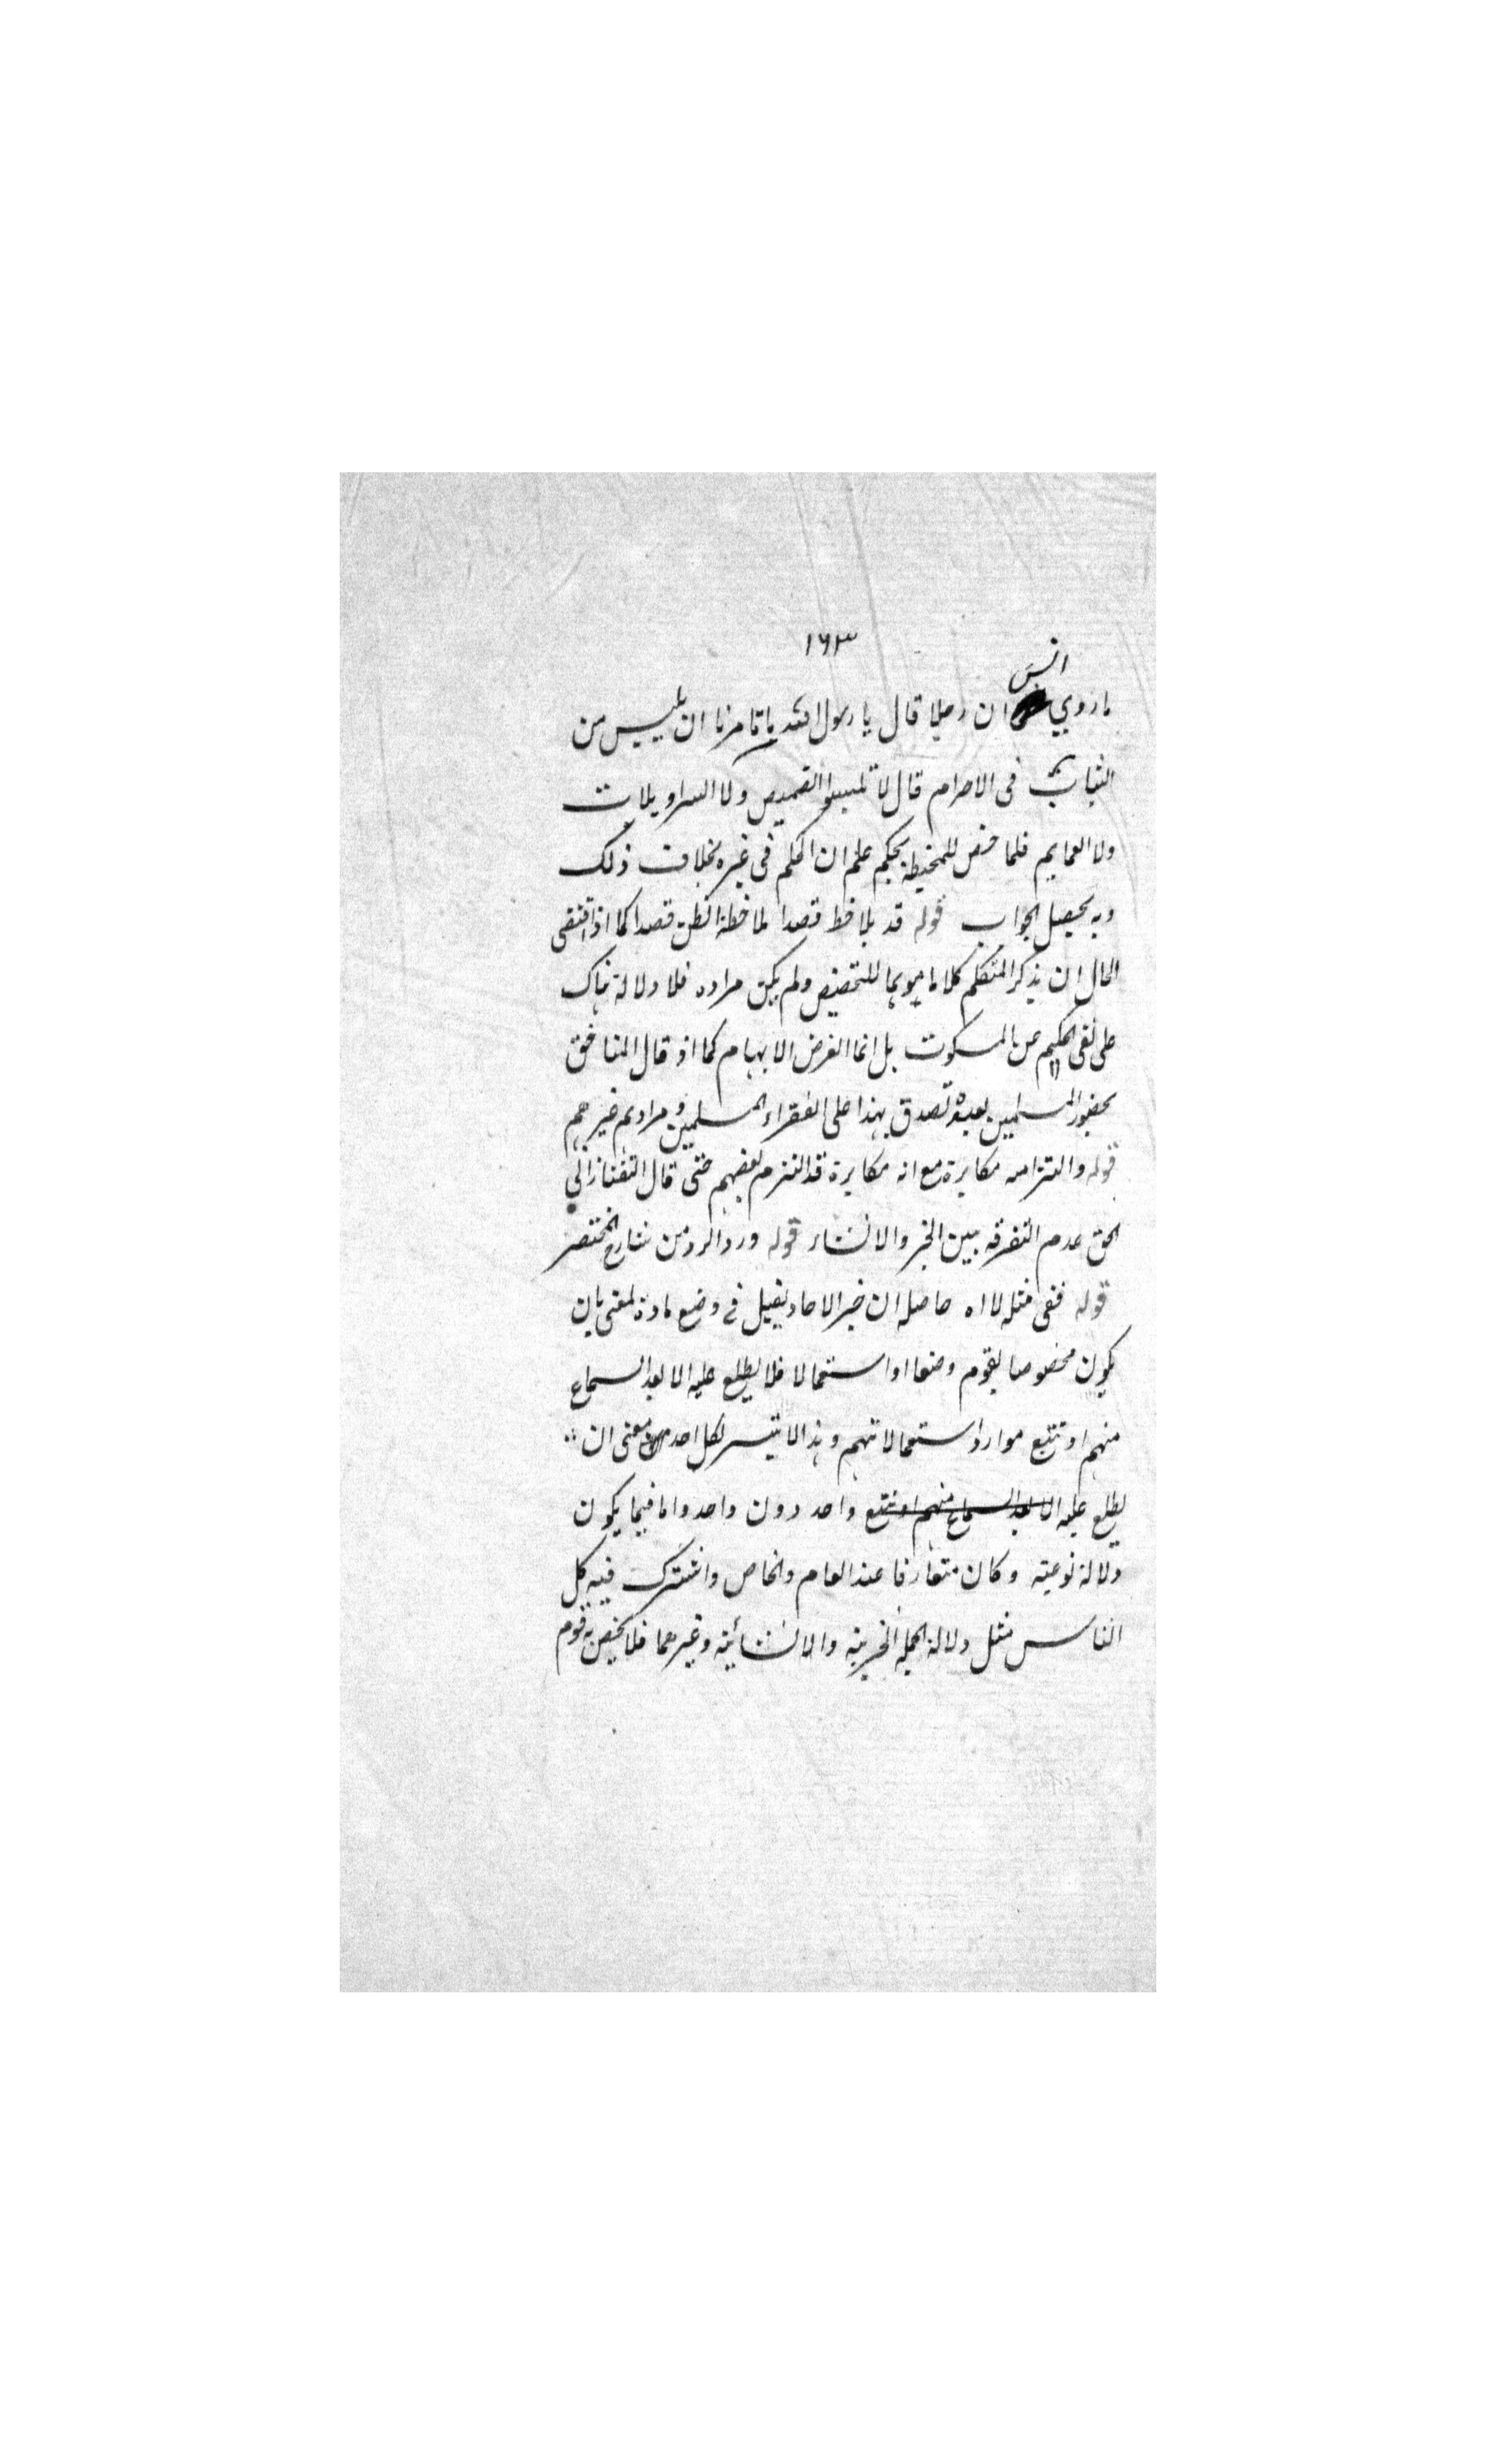 ١٦٣
انس
ما روي ان رجلا قال يا رسول الله ما تامرنا ان نلبس من
الثياب في الاحرام قال لا تلبسوا القميص ولا السراويلات
ولا العمايم فلما خص المخيطة بحكم علم ان الحكم في غيره بخلاف ذلك
وبه يحصل الجواب قوله قد يلاحظ قصدا لما خطة الظن قصدا كما اذا اقتضى
الحال ان يذكر المتكلم كلاما موهما للتخصيص ولم يكن مراده فلا دلالة هناك
على نفي الحكم عن المسكوت بل انما الغرض الابهام كما اذ قال المنافق
بحضور المسلمين لعبده تصدق بهذا على الفقراء المسلمين ومرادهم غيرهم
قوله والتزامه مكابرة مع انه مكابرة قد التزم بعضهم حتى قال التفتازاني
الحق عدم التفرقة بين الخبر والانشاء قوله ورد الرد من شارح المختصر
قوله ففي مثله لا اه حاصله ان خبر الاحاد يقبل في وضع مادة لمعنى بان
يكون مخصوصا بقوم وضعا او استعمالا فلا يطلع عليه الا بعد السماع
منهم او تتبع موارد استعمالاتهم وهذا لا يتيسر لكل احد معنى ان
يطلع عليه الا بعد السماع منهم او تتبع واحد دون واحد واما فيما يكون
دلالة نوعية وكان متعارفا عند العام والخاص واشترك فيه كل
الناس مثل دلالة الجملة الخبرية والانشائية وغيرهما فلا يختص به قوم